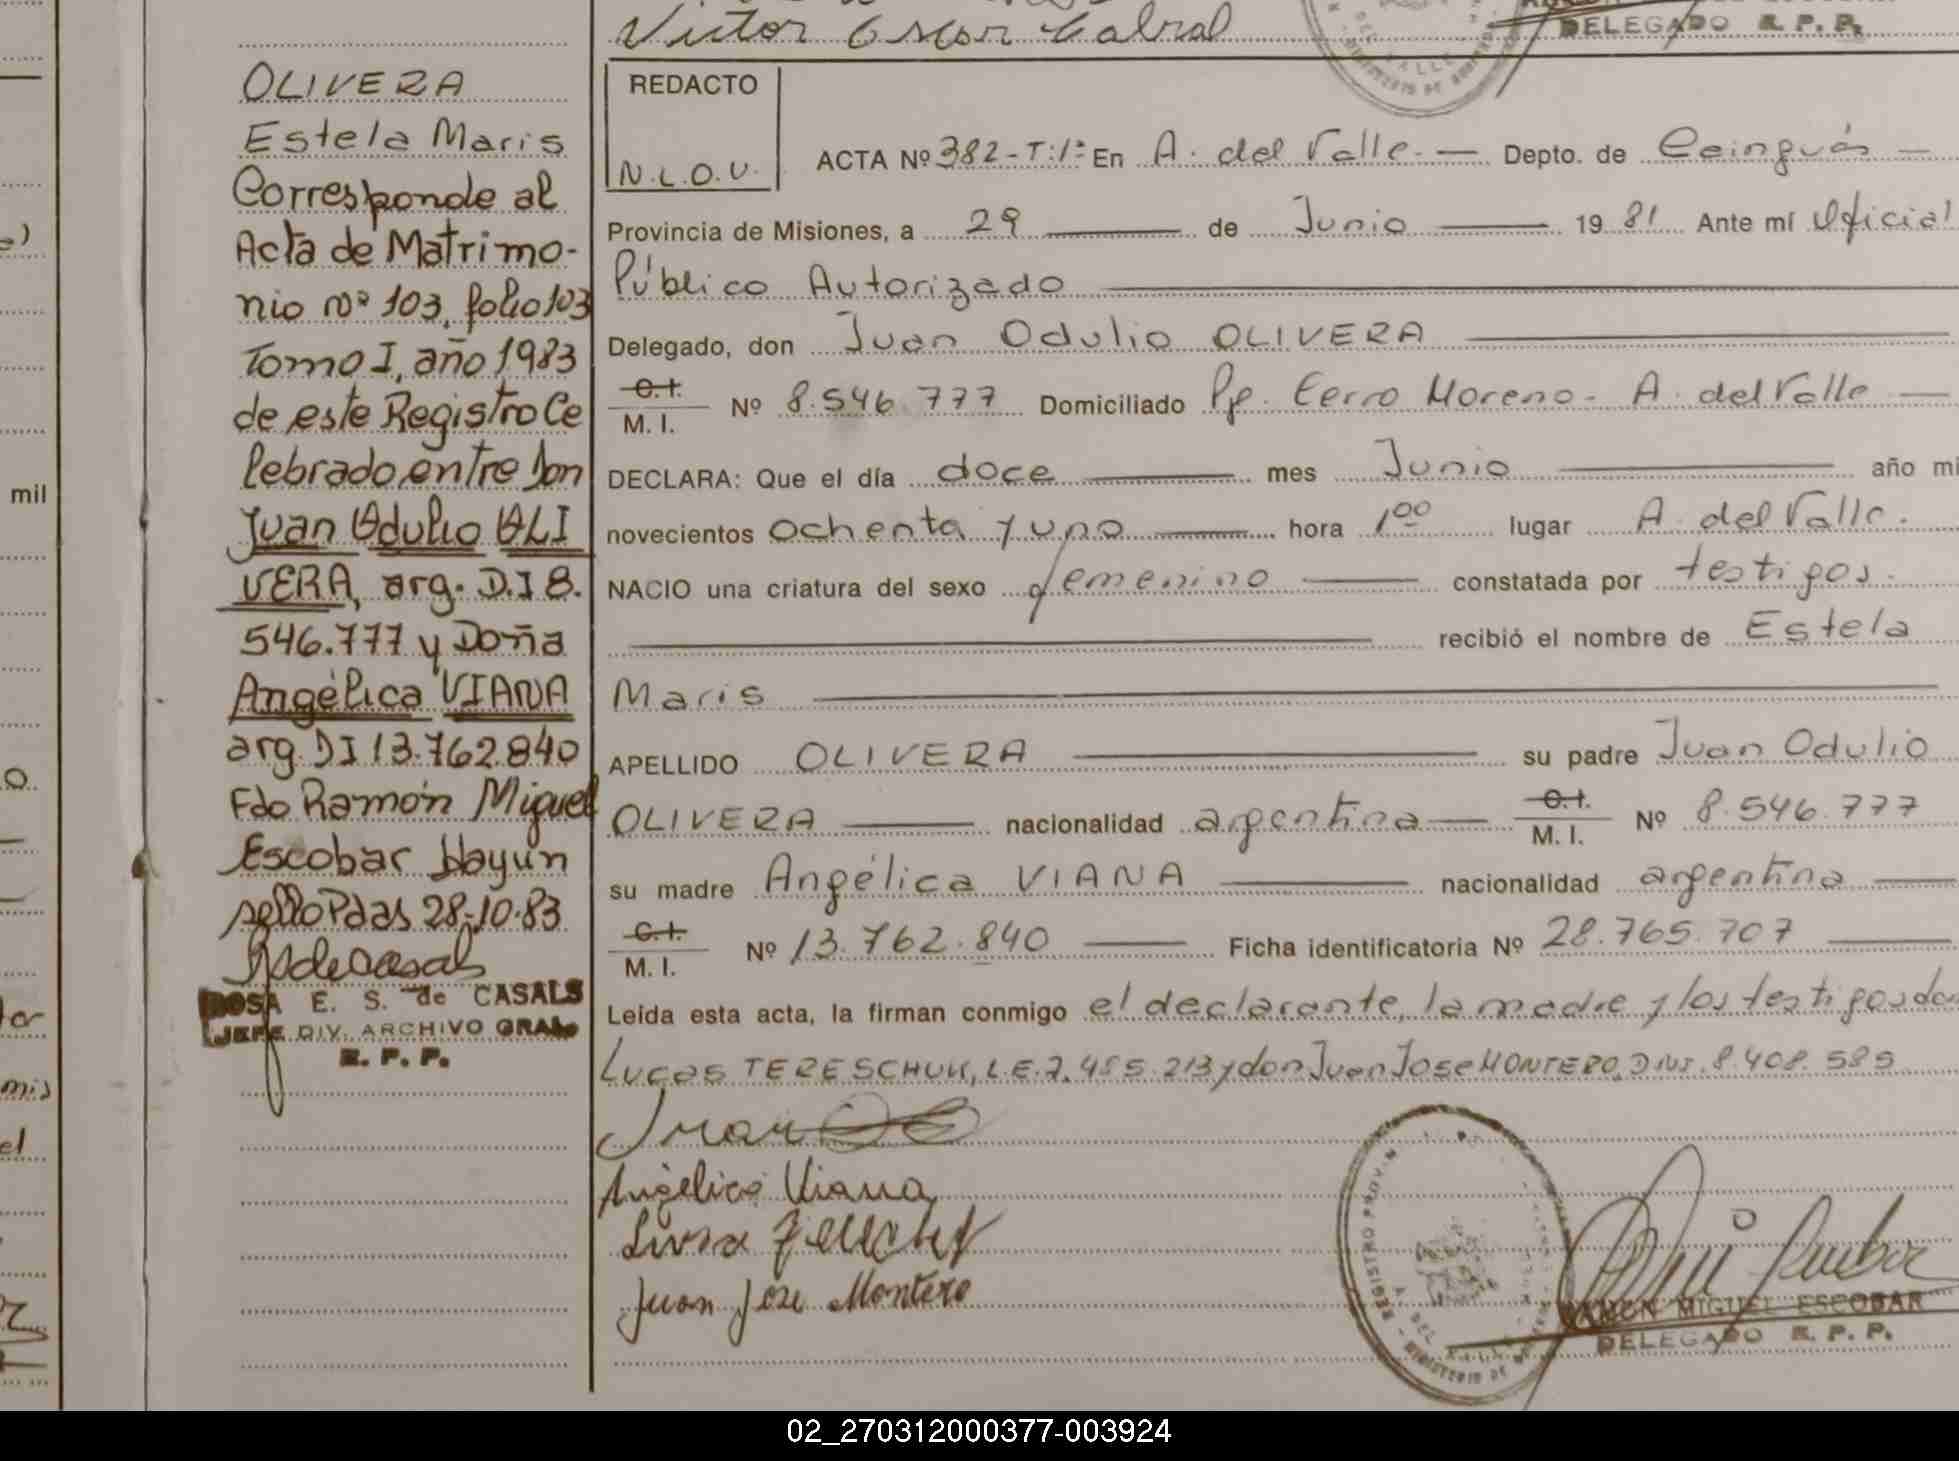 Victor Oscar Cabral
DELEGADO R. P. P.
OLIVERA
Estela Maris
Corresponde al
Acta de Matrimo-
nio Nº 103, folio 103
Tomo I, año 1983
de este Registro Ce
lebrado entre Don
Juan Odulio OLI
VERA, arg. D.I 8.
546.777 y Doña
Angélica VIANA
arg. DI 13.762.840
Fdo Ramón Miguel
Escobar Hayun
sello Pdas 28-10-83
ROSA E. S. de CASALS
JEFE DIV. ARCHIVO GRAL.
R. P. P.
REDACTO
N.L.O.V.
ACTA Nº 382-T:1º En A. del Valle.— Depto. de Cainguás —
Provincia de Misiones, a 29 — de Junio — 19 81 Ante mí Oficial
Público Autorizado
Delegado, don Juan Odulio OLIVERA
C.I.
M. I. Nº 8.546.777 Domiciliado Pje. Cerro Moreno- A. del Valle —
DECLARA: Que el día doce — mes Junio — año mi
novecientos ochenta y uno — hora 1⁰⁰ lugar A. del Valle.
NACIO una criatura del sexo femenino — constatada por testigos.
— recibió el nombre de Estela
Maris —
APELLIDO OLIVERA — su padre Juan Odulio
OLIVERA — nacionalidad argentina — C.I. M. I. Nº 8.546.777
su madre Angélica VIANA — nacionalidad argentina —
C.I.
M. I. Nº 13.762.840 — Ficha identificatoria Nº 28.765.707 —
Leída esta acta, la firman conmigo el declarante, la madre y los testigos don
Lucas TERESCHUK, L.E. 7.455.213 y don Juan Jose MONTERO, DNI. 8.408.585
Juan
Angélica Viana
Juan Jose Montero
RAMON MIGUEL ESCOBAR
DELEGADO R. P. P.
mil
02_270312000377-003924